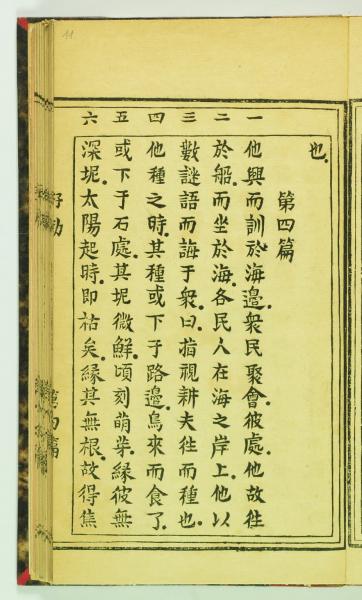 也.
第四篇
一 他興而訓於海邉.衆民聚會彼處.他故徃
二 於船.而坐於海.各民人在海之岸上.他以
三 數謎語而誨于衆.曰.指視耕夫徃而種也.
四 他種之時.其種或下于路邉.鳥來而食了.
五 或下于石處.其坭微鮮.頃刻萌芽.緣彼無
六 深坭.太陽起時.即祜矣.緣其無根.故得焦
11